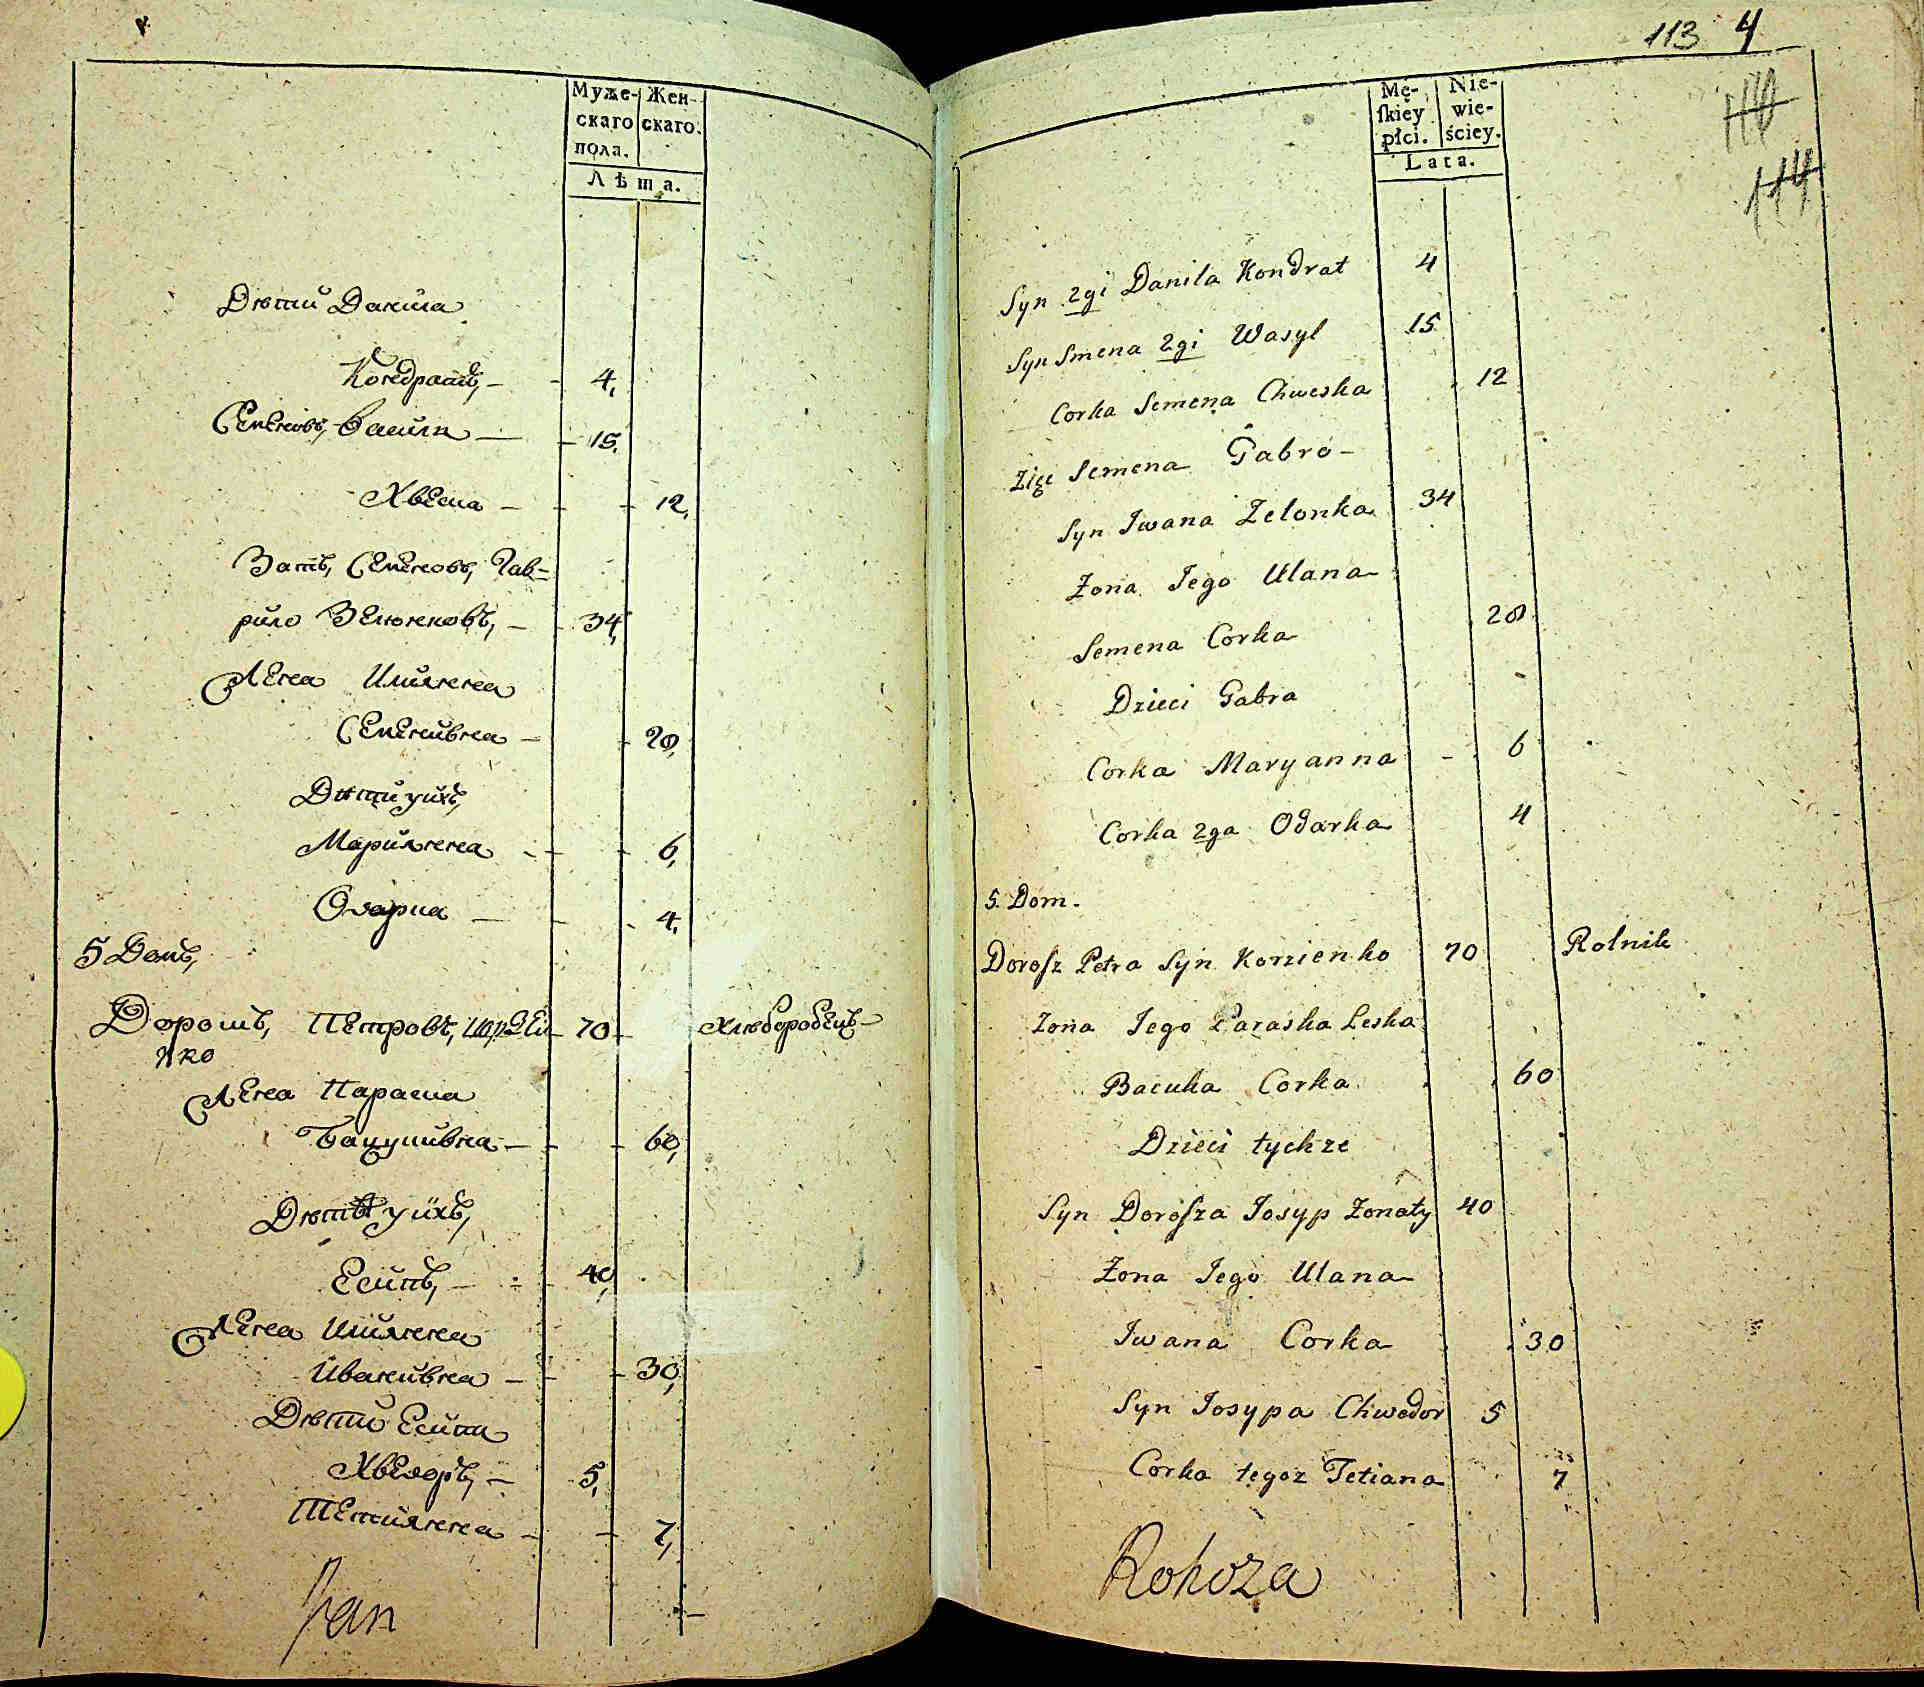 Муже-
скаго
пола.
Жен-
скаго.
Лѣта.
Дѣти Данила
Кондратъ, - - 4,
Семеновъ, Васили - - 15.
Хвеска - - - 12,
Зять, Семеновъ, Гав=
рило Зелюнковъ, - - 34,
Жена Улиянна
Семенивна - - 20,
Дѣти ихъ,
Марияnna - - - 6,
Одарка - - - 4.
5 Домъ,
Дорошъ, Петровъ, Корзеи - 70 - Хлѣборобецъ -
нко
Жена Параска
Бацукивна - - - 60,
Дѣти ихъ,
Есипъ, - - - 40,
Жена Улиянна
Иванивна - - - 30,
Дѣти Есипа
Хведоръ, - 5,
Тетиянна - - 7,
Jan
113 4
114
Mę-
ſkiey
płci.
Nie-
wie-
ściey.
Lata.
Syn 2gi Danila Kondrat 4
Syn Smena 2gi Wasyl 15
Corka Semena Chweska 12
Zięc Semena Gabro-
Syn Iwana Zelonka 34
Zona Jego Ulana
20
Semena Corka
Dzieci Gabra
Corka Maryanna - 6
Corka 2ga Odarka 4
5. Dom.
Doroſz Petra Syn Korzienko 70 Rolnik
Zona Jego Paraska Leska
Bacuka Corka 60
Dzieci tychze
Syn Doroſza Josyp Zonaty 40
Zona Jego Ulana
Iwana Corka 30
Syn Josypa Chwedor 5
Corka tegoz Tetiana 7
Rohoza